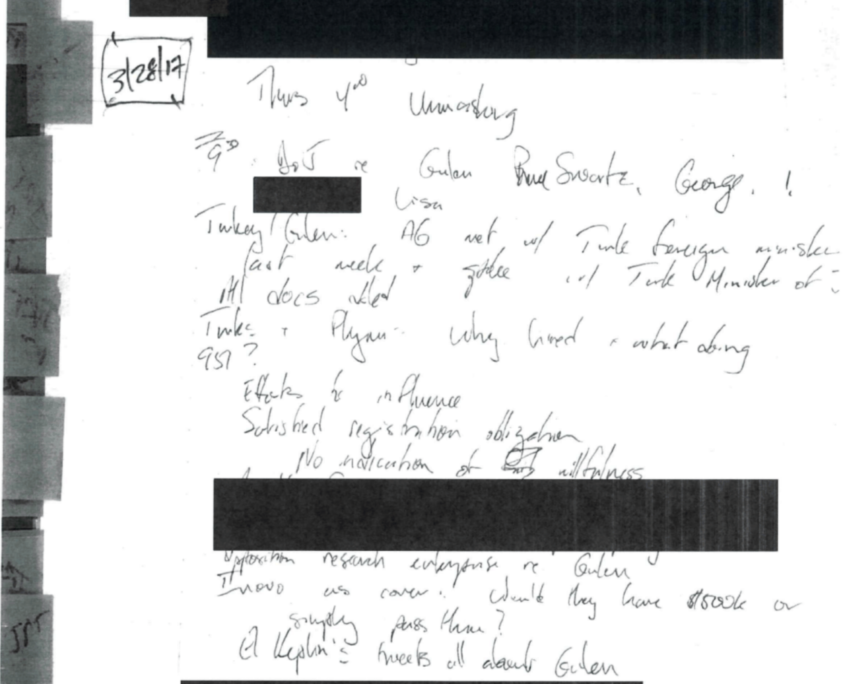 3/28/17
Thurs 4:00 Unmasking
DOJ re Gulen Bruce Swartz, George,
Lisa
Turkey/Gulen: AG met w/ Turk foreign minister
last week + w/ Turk Minister of
All docs
Turks + Flynn: Why hired + what doing
951?
Efforts to influence
Satisfied registration obligation
No indication of willfulness
Opposition research enterprise re Gulen
Inovo as cover. Would they have $500k or
simply pass thru?
tweets all about Gulen